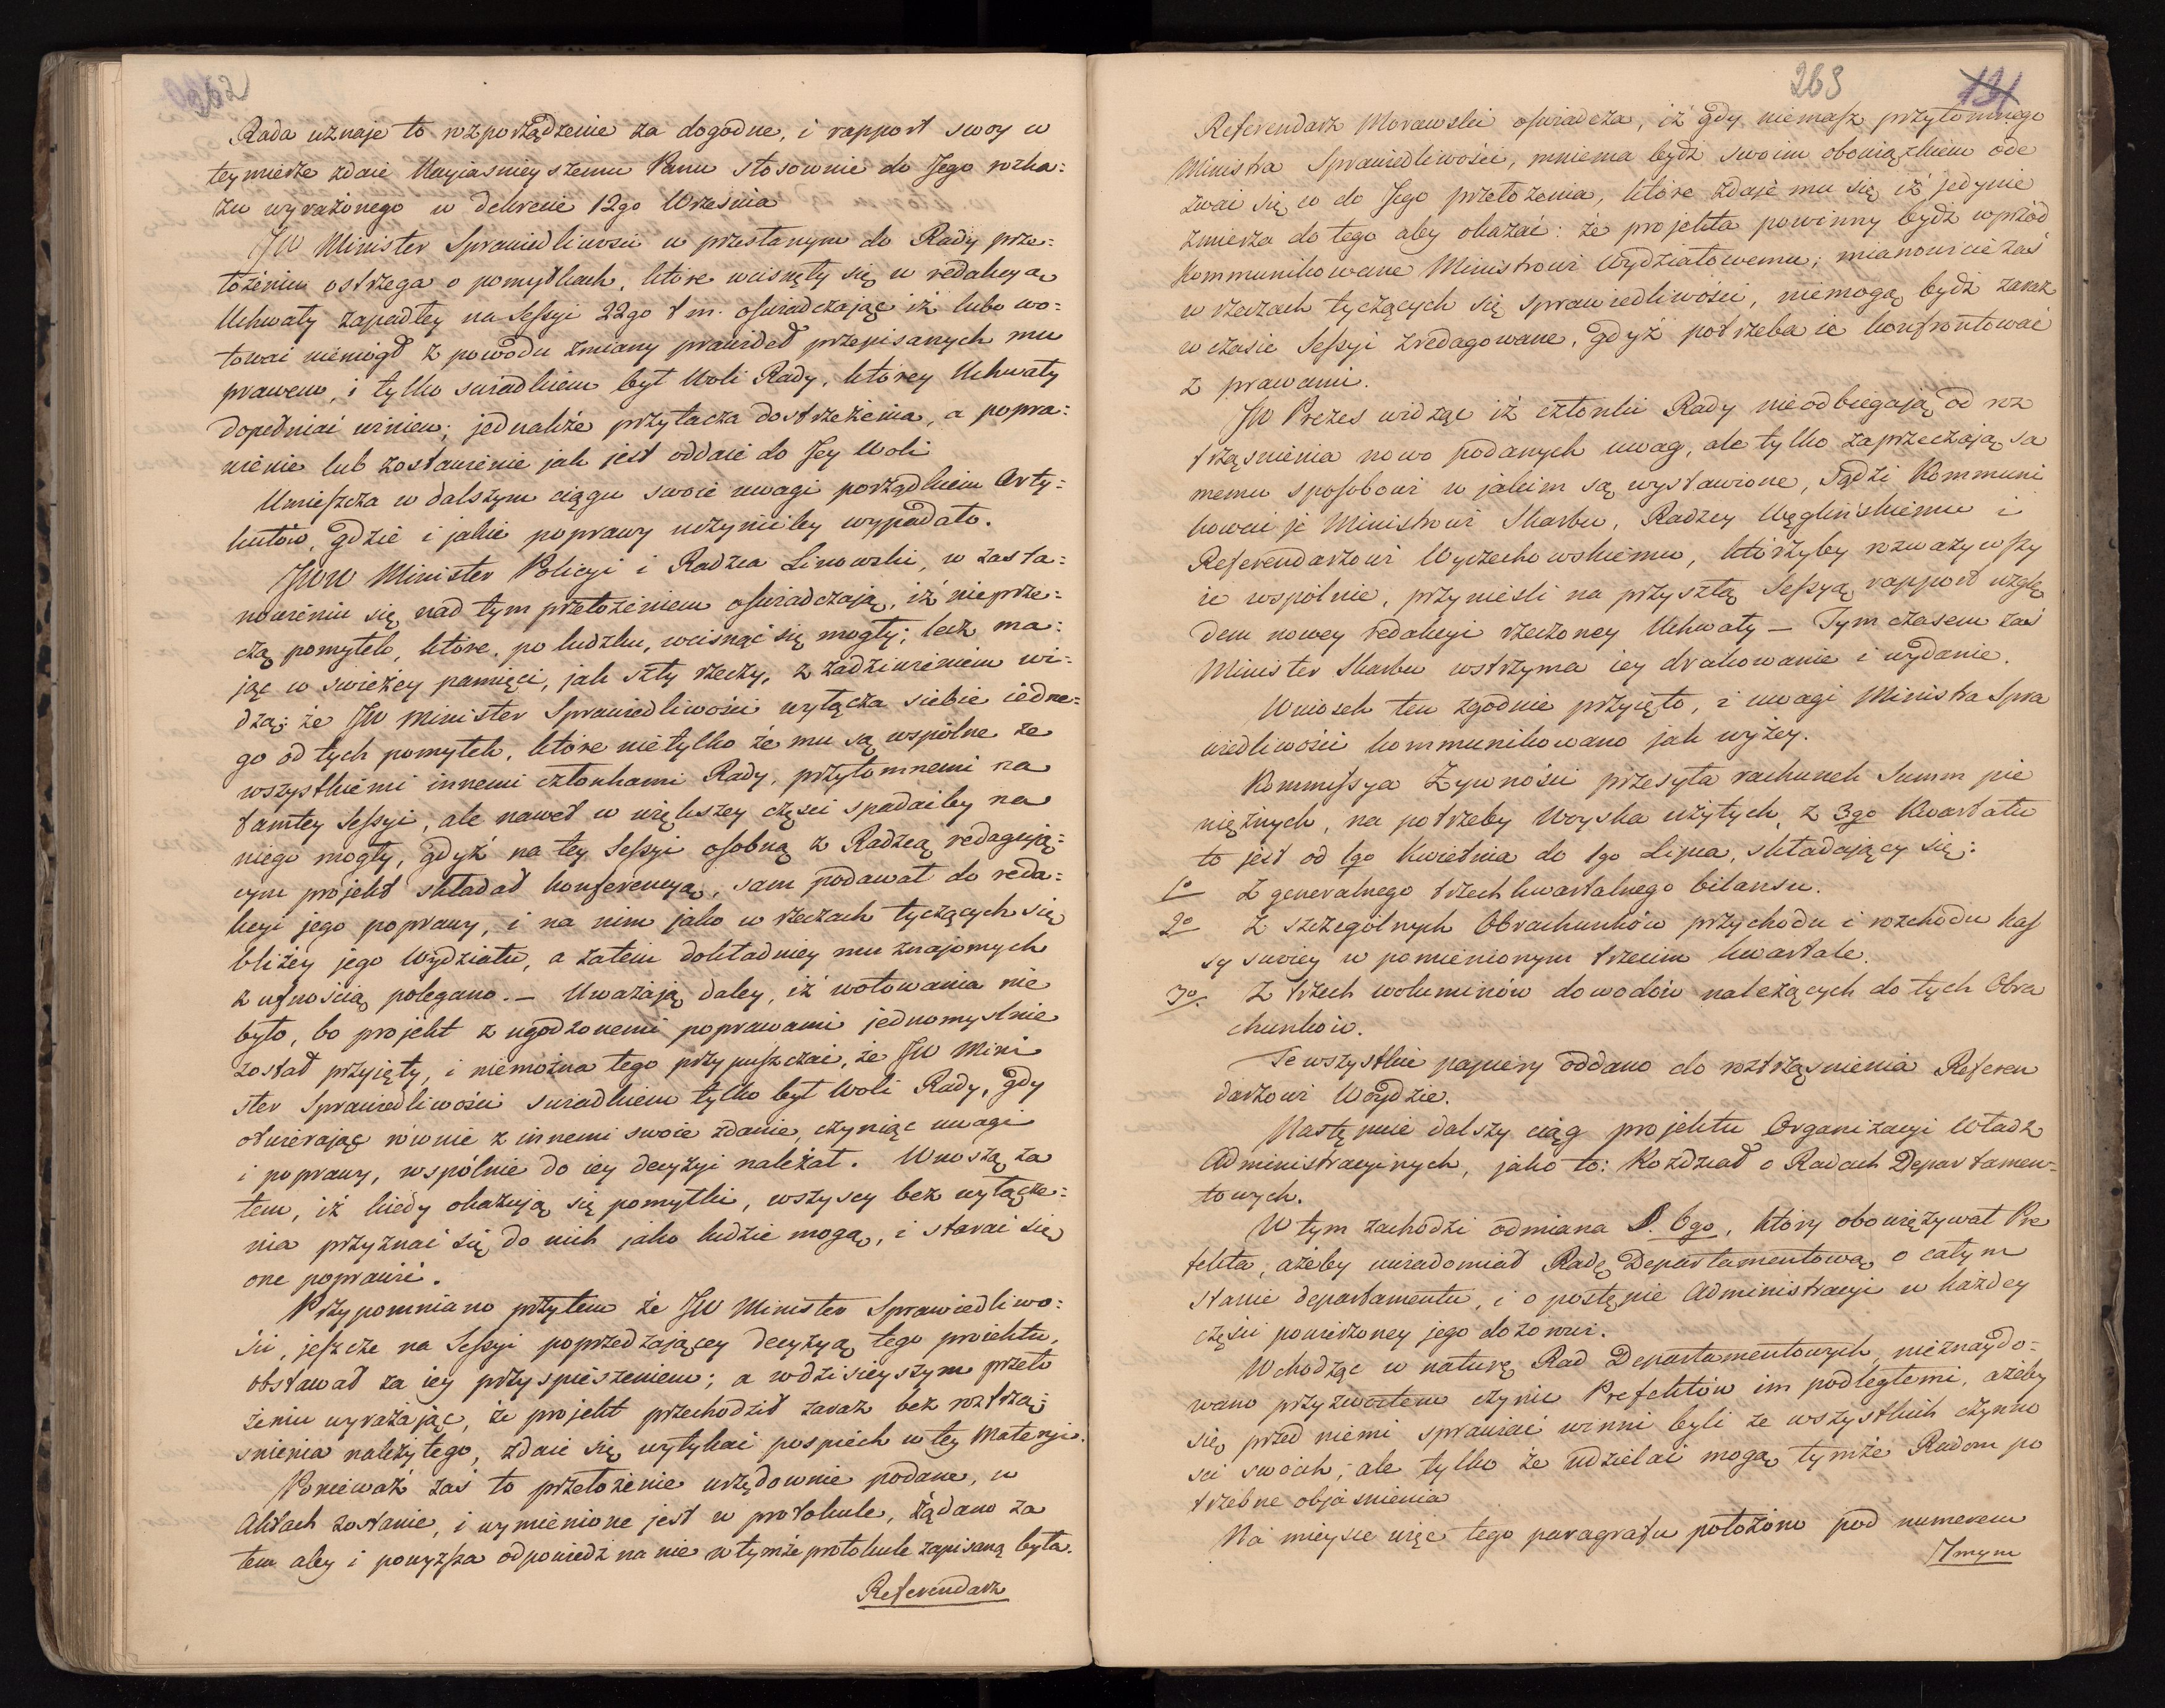 262
Rada uznaje to rozporządzenie za dogodne, i rapport swoy w
teymierze zdaie Nayiasnieyszemu Panu stosownie do Jego rozka:
zu wyrażonego w dekrecie 12go Września
JW Minister Sprawiedliwości w przesłanym do Rady prze:
łożeniu ostrzega o pomyłkach, które wcisnęły się w redakcyą
Uchwały zapadłey na Sessyi 22go t m. oświadczając iż lubo wo:
tować niemógł z powodu zmiany prawideł przepisanych mu
prawem, i tylko świadkiem był Woli Rady, którey Uchwały
dopełniać winien; jednakże przytacza dostrzeżenia, a popra:
wienie lub zostawienie jak jest oddaie do Jey Woli
Umieszcza w dalszym ciągu swoie uwagi porządkiem Arty:
kułów, gdzie i jakie poprawy uczynićby wypadało.
JWW Minister Policyi i Radzca Linowski, w zasta:
nowieniu się nad tym przełożeniem oświadczają, iż nieprze:
czą pomyłek, które, po ludzku, wcisnąć się mogły; lecz ma:
jąc w świeżey pamięci, jak szły rzeczy, z zadziwieniem wi:
dzą; że JW Minister Sprawiedliwości wyłącza siebie iedne:
go od tych pomyłek, które nietylko że mu są wspólne ze
wszystkiemi innemi członkami Rady, przytomnemi na
tamtey Sessyi, ale nawet w większey części spadaćby na
niego mogły, gdyż na tey Sessyi osobną z Radzcą redagują:
cym projekt składał konferencyą, sam podawał do reda:
kcyi jego poprawy, i na nim jako w rzeczach tyczących się
bliżey jego Wydziału, a zatem dokładniey mu znajomych
z ufnością polegano. — Uważają daley, iż wotowania nie
było, bo projekt z ugodzonemi poprawami jednomyślnie
został przyięty, i niemożna tego przypuszczać, że JW Mini
ster Sprawiedliwości świadkiem tylko był Woli Rady, gdy
otwierając równie z innemi swoie zdanie, czyniąc uwagi
i poprawy, wspólnie do iey decyzyi należał. Wnoszą za
tem, iż kiedy okazują się pomyłki, wszyscy bez wyłącze:
nia przyznać się do nich jako ludzie mogą, i starać się
one poprawić.
Przypomniano przytem że JW Minister Sprawiedliwo:
ści, jeszcze na Sessyi poprzedzającey decyzyą tego projektu,
obstawał za iey przyspieszeniem; a w dzisieyszym przeło
żeniu wyrażając, że projekt przechodził zaraz bez roztrzą:
snienia należytego, zdaie się wytykać pospiech w tey Materyi.
Ponieważ zaś to przełożenie urzędownie podane, w
Aktach zostanie, i wymienione jest w protokule, żądano za
tem aby i powyższa odpowiedź na nie w tymże protokule zapisaną była.
Referendarz
263
131
Referendarz Morawski oświadcza, iż gdy niemasz przytomnego
Ministra Sprawiedliwości, mniema bydź swoim obowiązkiem ode
zwać się co do Jego przełożenia, które zdaje mu się iż jedynie
zmierza do tego aby okazać: że projekta powinny bydź wprzód
kommunikowane Ministrowi Wydziałowemu; mianowicie zaś
w rzeczach tyczących się sprawiedliwości, niemogą bydź zaraz
w czasie Sessyi zredagowane, gdyż potrzeba ie konfrontować
z prawami.
JW Prezes widząc iż członki Rady nieodbiegają od roz
trząśnienia nowo podanych uwag, ale tylko zaprzeczają sa
memu sposobowi w jakim są wystawione, sądzi kommuni
kować je Ministrowi Skarbu, Radzcy Węglińskiemu i
Referendarzowi Wyczechowskiemu, którzyby rozważywszy
ie wspólnie, przynieśli na przyszłą Sessyą rapport wzglę
dem nowey redakcyi rzeczoney Uchwały — Tymczasem zaś
Minister Skarbu wstrzyma iey drukowanie i wydanie.
Wniosek ten zgodnie przyięto, i uwagi Ministra Spra
wiedliwości kommunikowano jak wyżey.
Kommissya Żywności przesyła rachunek Summ pie
niężnych, na potrzeby Woyska użytych, z 3go Kwartału
to jest od 1go Kwietnia do 1go Lipca, składający się:
1o Z generalnego trzechkwartalnego bilansu.
2o Z szczególnych Obrachunków przychodu i rozchodu kas
sy swoiey w pomienionym trzecim kwartale.
3o. Z trzech woluminów dowodów należących do tych Obra
chunków.
Te wszystkie papiery oddano do roztrząśnienia Referen
darzowi Woydzie.
Następnie dalszy ciąg projektu Organizacyi Władz
Administracyinych, jako to: Rozdział o Radach Departamen-
towych.
W tym zachodzi odmiana §. 6go, który obowiązywał Pre
fekta, ażeby uwiadomiał Radę Departamentową o całym
stanie departamentu, i o postępie Administracyi w każdey
części powierzoney jego dozorowi.
Wchodząc w naturę Rad Departamentowych, nieznaydo-
wano przyzwoitem czynić Prefektów im podległemi, ażeby
się przed niemi sprawiać winni byli ze wszystkich czynno
ści swoich; ale tylko że udzielać mogą tymże Radom po
trzebne objaśnienia
Na mieysce więc tego paragrafu położono pod numerem
7mym